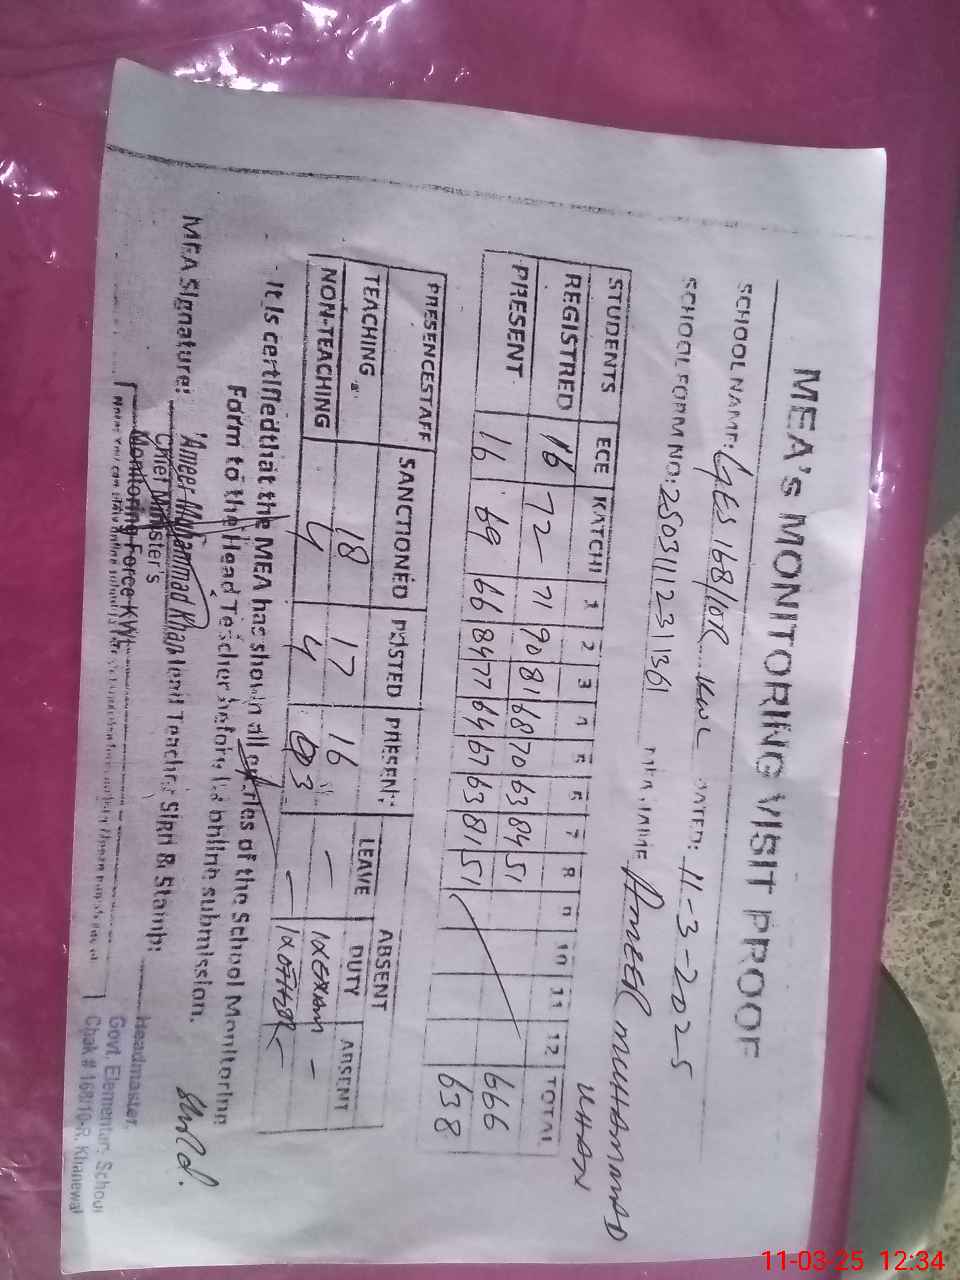 MEA'S MONITORING VISIT PROOF
SCHOOL NAME: GES 168/10R KWL DATED: 11-3-2025
SCHOOL FORM NO: 25031112311361 MEA NAME AMEER MUHAMMAD KHAN
STUDENTS ECE KATCHI 1 2 3 4 5 6 7 8 9 10 11 12 TOTAL
REGISTRED 16 72 71 90 81 68 70 63 84 51 666
PRESENT 16 69 66 84 77 64 67 63 81 51 638
PRESENCESTAFF SANCTIONED POSTED PRESENT ABSENT
LEAVE DUTY ABSENT
TEACHING 18 17 16 – 1xEXAM –
NON-TEACHING 4 4 03 – 1xOTHER
It is certified that the MEA has shown all entries of the School Monitoring
Form to the Head Teacher before its online submission.
MEA Signature: Head Teacher Sign & Stamp:
Ameer Muhammad Khan
Chief Minister's
Monitoring Force KWL
Headmaster
Govt. Elementary School
Chak # 168/10-R, Khanewal
11-03-25 12:34